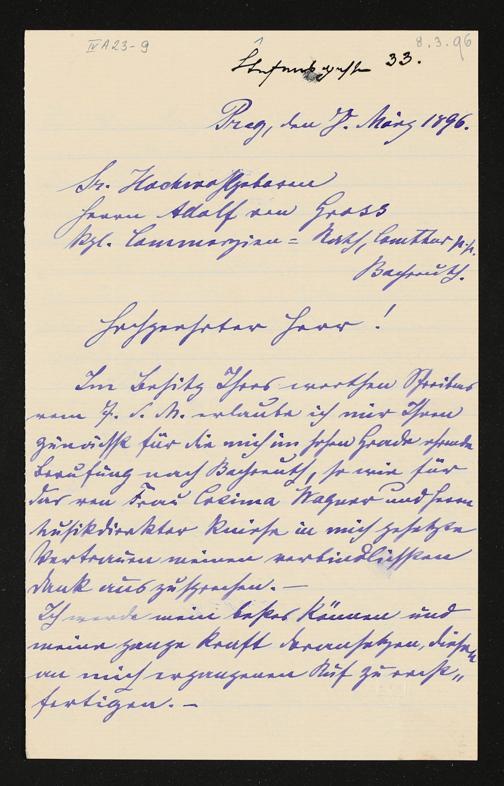 IV A 23-9
8.3.96
Stefansgasse 33.
Prag, den 8. März 1896.
Sr. Hochwohlgeboren
Herrn Adolf von Gross
kgl. Commerzien = Rath, Comthur p.p.
Bayreuth.
Hochgeehrter Herr!
Im Besitz Ihres werthen Schreibens
vom 7. d. M. erlaube ich mir Ihnen
zunächst für die mich im hohen Grade ehrende
Berufung nach Bayreuth, so wie für
das von Frau Cosima Wagner und Herrn
Musikdirektor Kniese in mich gesetzte
Vertrauen meinen verbindlichsten
Dank auszusprechen. —
Ich werde mein bestes Können und
meine ganze Kraft daransetzen, diesen
an mich ergangenen Ruf zu recht„
fertigen. —